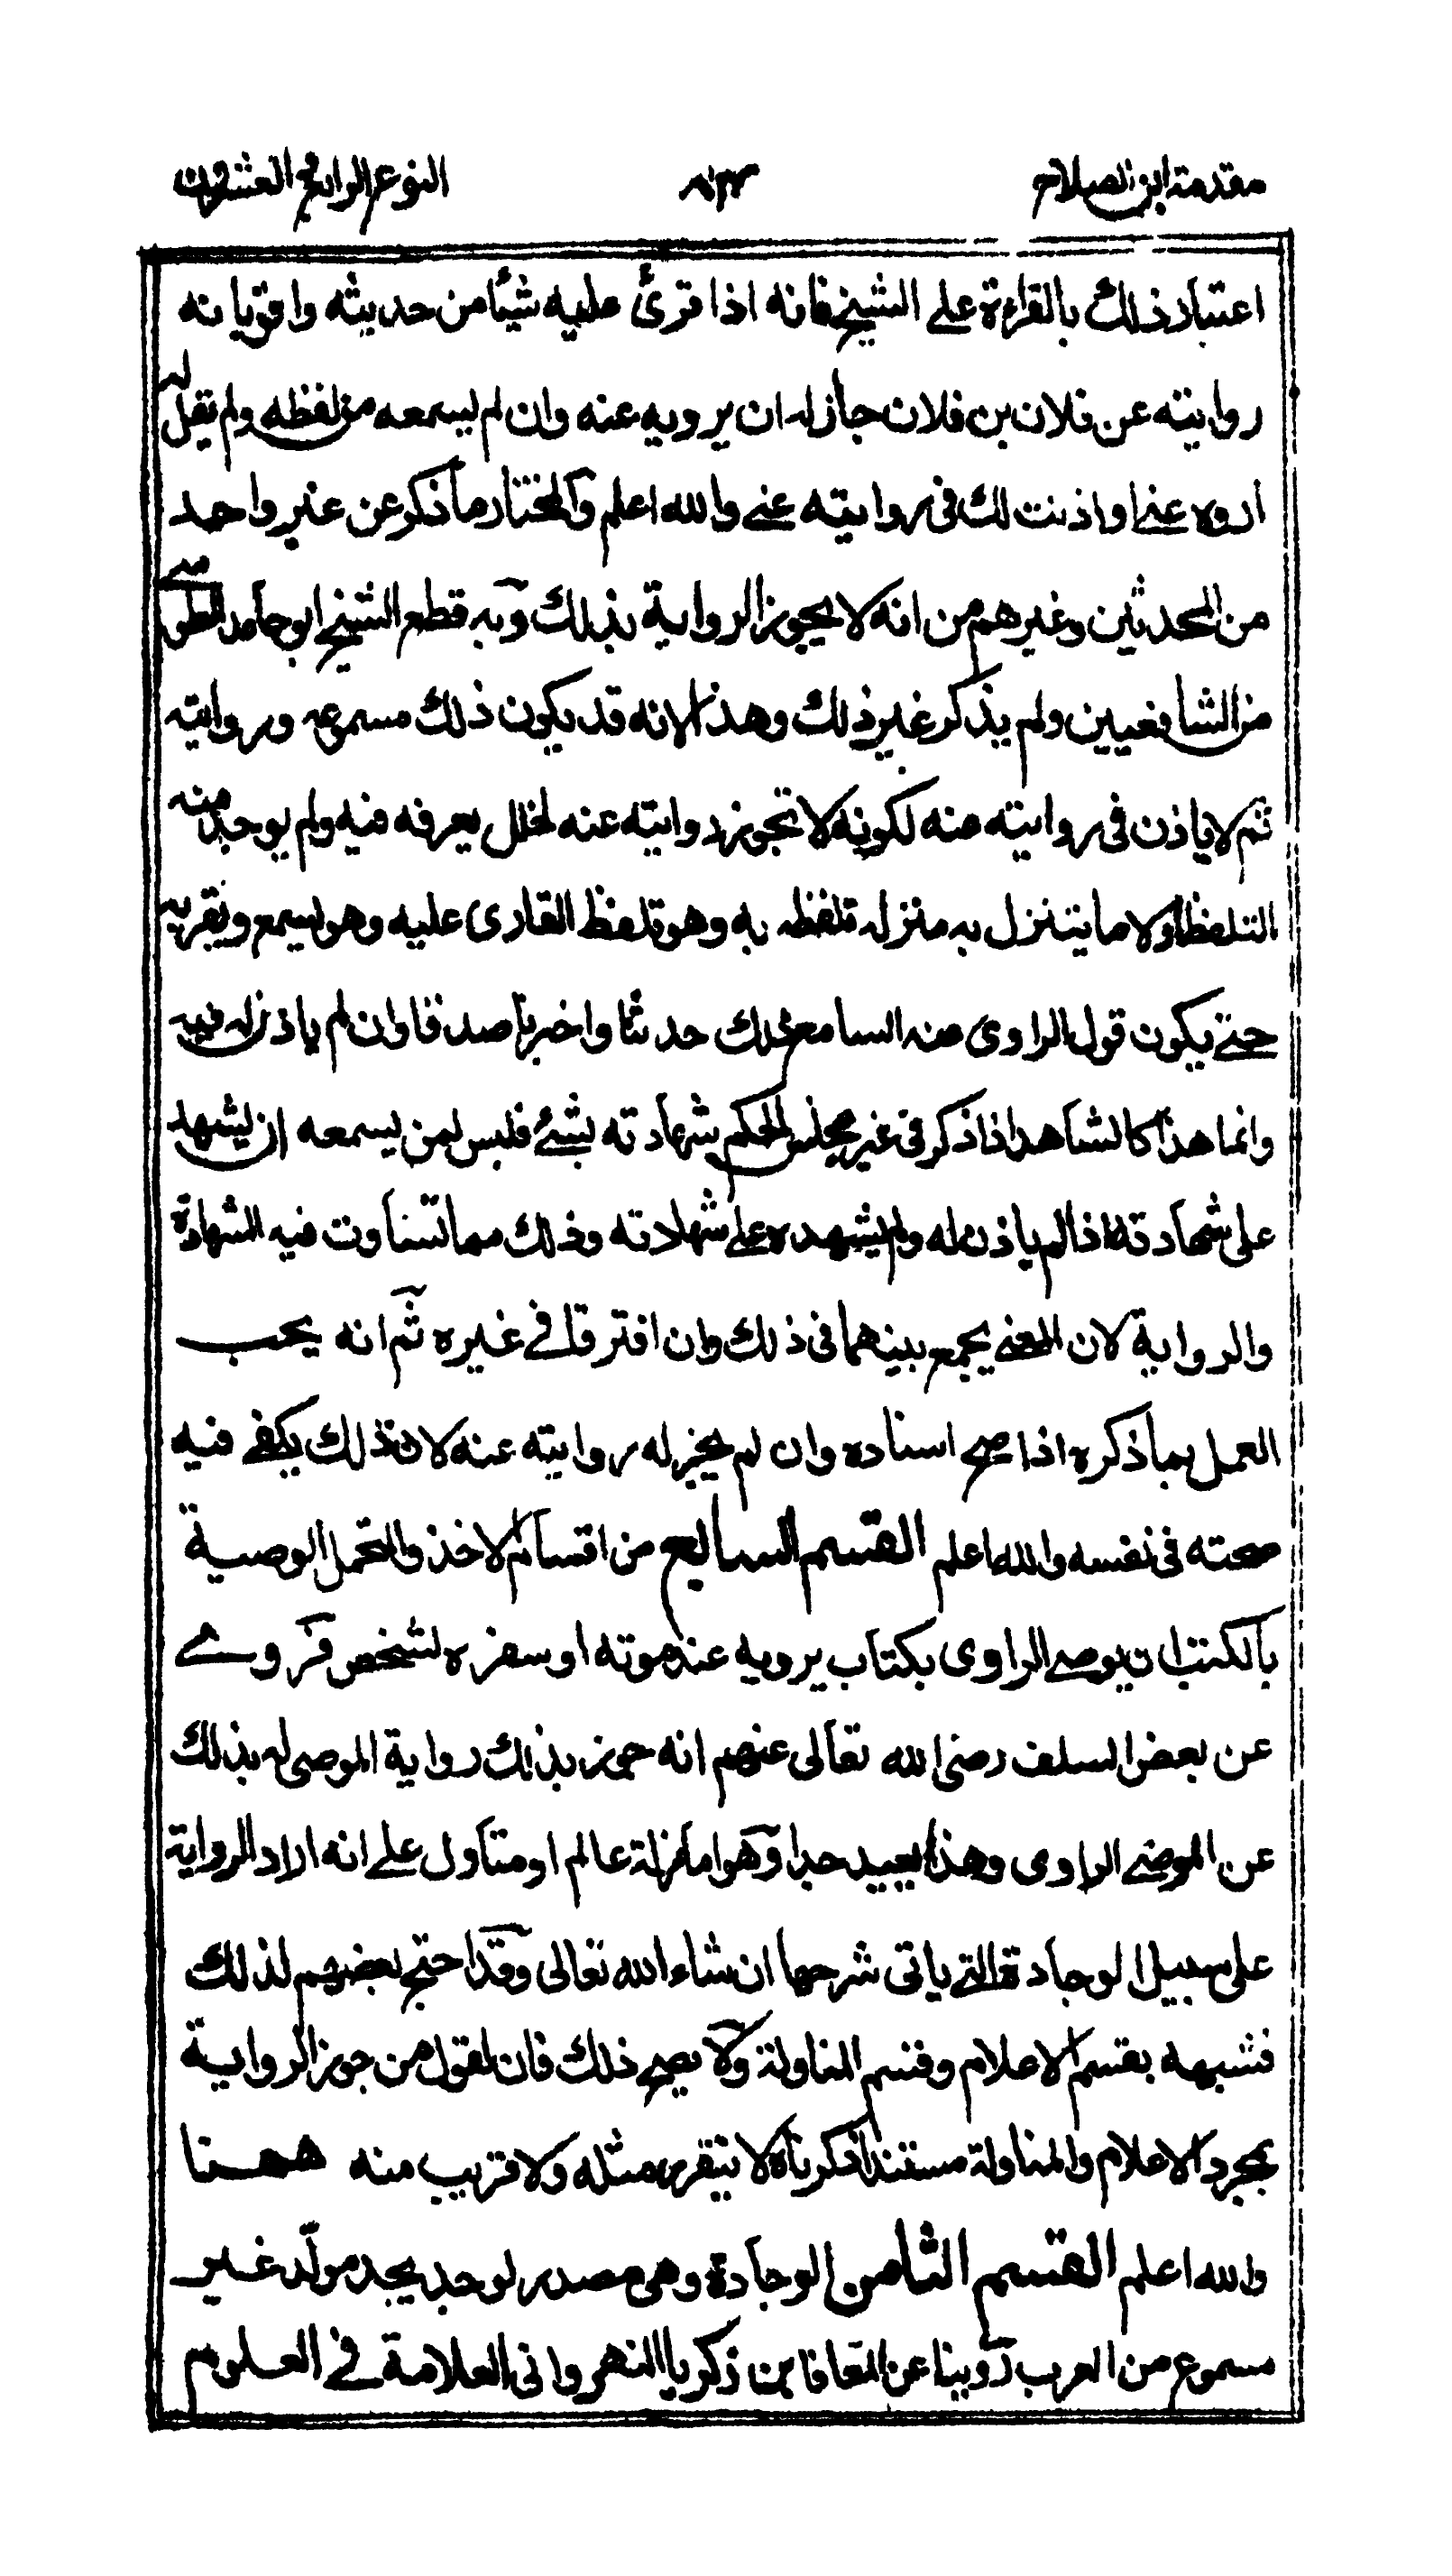 مقدمة ابن الصلاح
النوع الرابع والعشرون
اعتبار ذلك بالقراءة على الشيخ فانه اذا قرئ عليه شيئا من حديثه واقر بانه
روايته عن فلان بن فلان جاز له ان يرويه عنه وان لم يسمعه من لفظه ولم يقل له
اروه عني او اذنت لك في روايته عني والله اعلم والمختار ما ذكر عن غير واحد
من المحدثين وغيرهم من انه لا يجوز الرواية بذلك وبه قطع الشيخ ابو حامد الطوسي
من الشافعيين ولم يذكر غير ذلك وهذا لانه قد يكون ذلك مسموعه وروايته
ثم لا ياذن في روايته عنه لكونه لا تجوز روايته عنه لخلل يعرفه فيه ولم يوجد منه
التلفظ ولا ما يتنزل به منزلة تلفظه به وهو تلفظ القارى عليه وهو يسمع ويقر به
حتى يكون قول الراوى عنه السامع ذلك حدثنا واخبرنا صدقا وان لم ياذن له فيه
وانما هذا كالشاهد اذا ذكر في غير مجلس الحكم شهادته بشئ فليس لمن يسمعه ان يشهد
على شهادته اذا لم ياذن له ولم يشهده على شهادته وذلك مما تساوت فيه الشهادة
والرواية لان المعنى يجمع بينهما في ذلك وان افترقا في غيره ثم انه يجب
العمل بما ذكره اذا صح اسناده وان لم يجز له روايته عنه لان ذلك يكفي فيه
صحته في نفسه والله اعلم القسم السابع من اقسام الاخذ والتحمل الوصية
بالكتب ان يوصى الراوى بكتاب يرويه عند موته او سفره لشخص فروى
عن بعض السلف رضى الله تعالى عنهم انه جوز بذلك رواية الموصى له بذلك
عن الموصى الراوى وهذا بعيد جدا وهو اما زلة عالم او متأول على انه اراد الرواية
على سبيل الوجادة التى ياتى شرحها ان شاء الله تعالى وقد احتج بعضهم لذلك
فشبهه بقسم الاعلام وقسم المناولة ولا يصح ذلك فان لقول من جوز الرواية
بمجرد الاعلام والمناولة مستندا ذكرناه لا يتقرر مثله ولا قريب منه ههنا
والله اعلم القسم الثامن الوجادة وهى مصدر لوجد يجد مولد غير
مسموع من العرب روينا عن المعافا بن زكريا النهروانى العلامة في العلوم